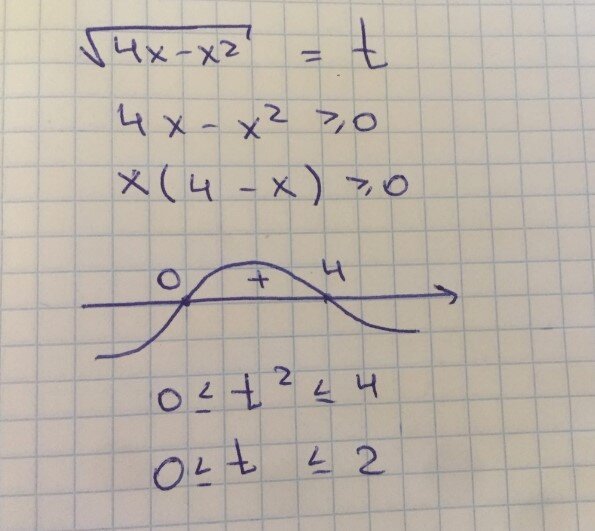 √(4x-x²) = t
4x - x² ≥ 0
x(4 - x) ≥ 0
0 + 4
0 ≤ t² ≤ 4
0 ≤ t ≤ 2